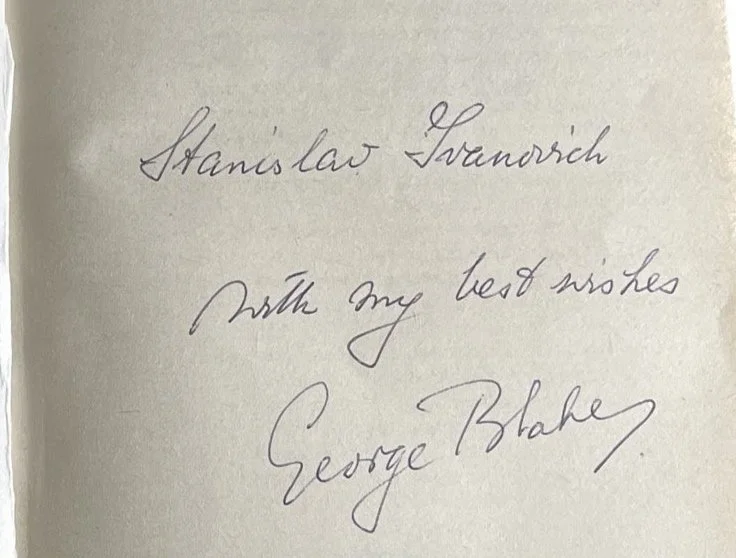 Stanislav Ivanovich
with my best wishes
George Blake